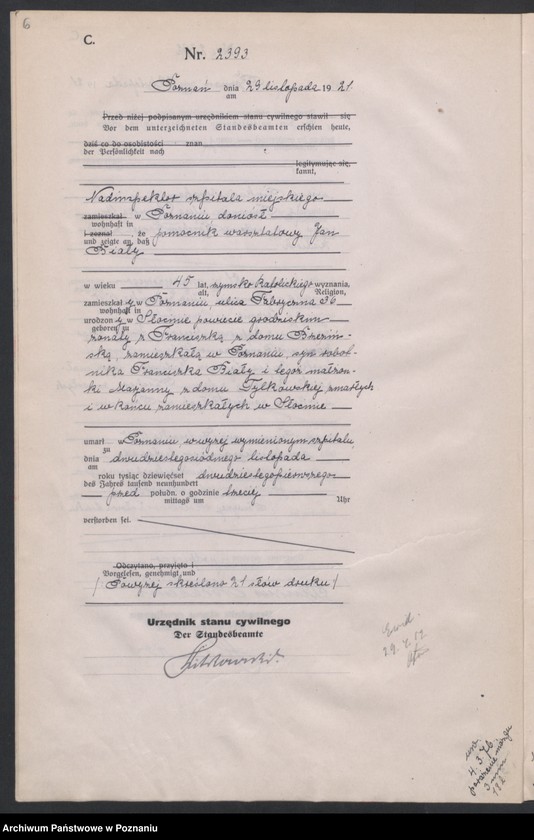 6
C.
Nr. 2393
Poznań dnia 29 listopada 1921
am
Przed niżej podpisanym urzędnikiem stanu cywilnego stawił się
Vor dem unterzeichneten Standesbeamten erschien heute,
dziś co do osobistości znan
der Persönlichkeit nach
legitymując się,
kannt,
Nadinspektor szpitala miejskiego
zamieszkał w Poznaniu doniósł
wohnhaft in
i zeznał, że pomocnik warsztatowy Jan
und zeigte an, daß
Biały
w wieku 45 lat, rzymsko katolickiego wyznania,
alt, Religion,
zamieszkał y w Poznaniu ulica Fabryczna 36
wohnhaft in
urodzon y w Słocinie powiecie grodziskim
geboren zu
żonaty z Franciszką z domu Brzeziń-
ską, zamieszkałą w Poznaniu, syn robot-
nika Franciszka Biały i tegoż małżon-
ki Marjanny z domu Tylkowskiej zmarłych
i w końcu zamieszkałych w Słocinie
umarł w Poznaniu w wyżej wymienionym szpitalu
zu
dnia dwudziestegosiódmego listopada
am
roku tysiąc dziewięćset dwudziestegopierwszego
des Jahres tausend neunhundert
przed połudn. o godzinie trzeciej
mittags um Uhr
verstorben sei.
Odczytano, przyjęto i
Vorgelesen, genehmigt und
/ Powyżej skreślono 21 słów druku /
Urzędnik stanu cywilnego
Der Standesbeamte
ur.
4.3.76
3
Archiwum Państwowe w Poznaniu